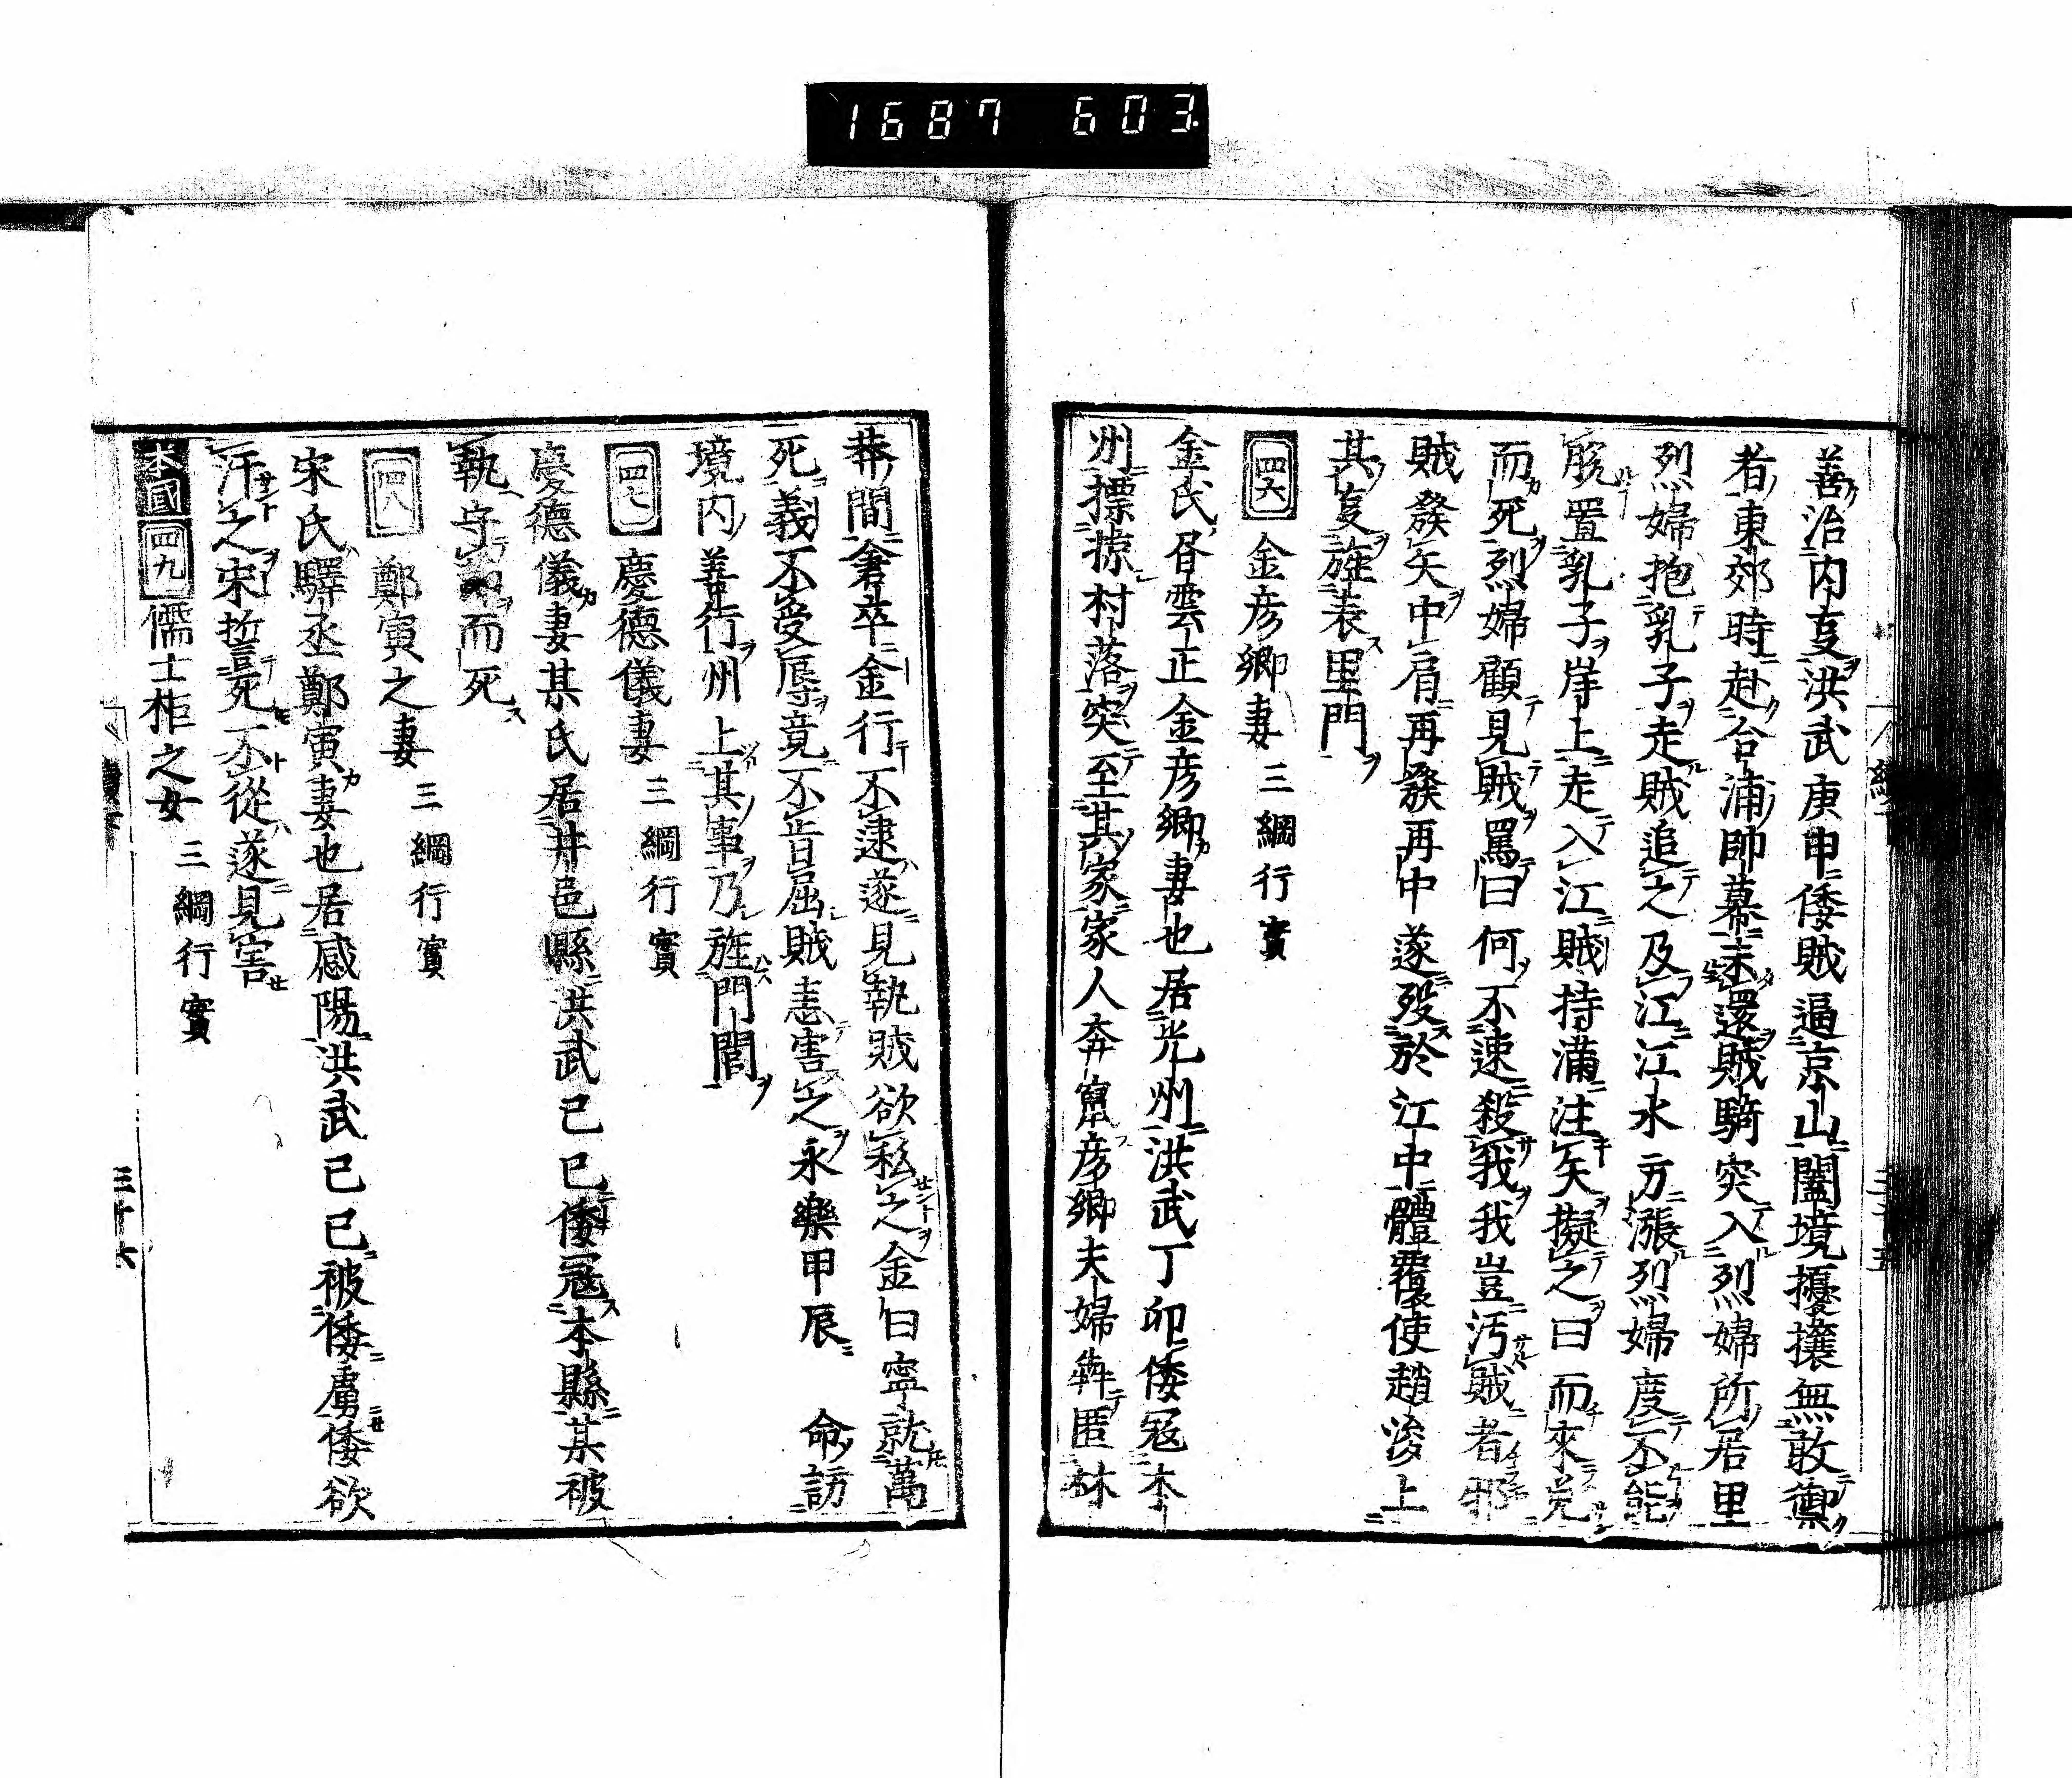 1687 603.
善治内叓洪武庚申倭賊逼京山闔境擾攘無敢禦
者東郊時赴合浦帥幕未還賊騎突入烈婦所居里
烈婦抱乳子走賊追之及江江水方漲烈婦度不能
脱置乳子岸上走入江賊持滿注矢擬之曰而來免
而死烈婦顧見賊罵曰何不速殺我我豈汚賊者邪
賊發矢中肩再發再中遂歿於江中體覆使趙浚上
其叓旌表里門
四六 金彦卿妻 三綱行實
金氏書雲正金彦卿妻也居光州洪武丁卯倭寇本
州摽掠村落突至其家家人奔竄彦卿夫婦犇匿林
莽間倉卒金行不逮遂見執賊欲私之金曰寧就萬
死義不受辱竟不肯屈賊恚害之永樂甲辰 命訪
境内善行州上其事乃旌門閭
四七 慶德儀妻 三綱行實
慶德儀妻某氏居井邑縣洪武己巳倭寇本縣某被
執守而死
四八 鄭寅之妻 三綱行實
宋氏驛丞鄭寅妻也居感陽洪武己巳被倭虜倭欲
汗之宋誓死不從遂見害
本國 四九 儒士柜之女 三綱行實
三十六